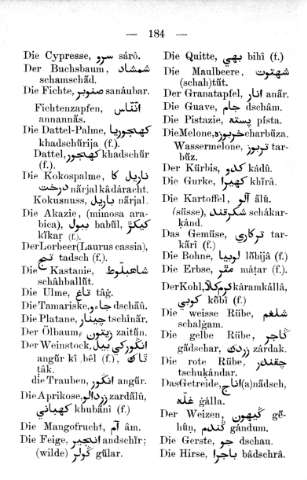 — 184 —
Die Cypresse, سرو sárō.
Der Buchsbaum, شمشاد
schamschâd.
Die Fichte, صنوبر sanáubar.
Fichtenzapfen,
annannâs.
Die Dattel-Palme, کهجوریا
khadschûrija (f.)
Dattel, کهجور khadschûr
(f.).
Die Kokospalme, ناریل کا
درخت nârjal kâdáracht.
Kokusnuss, ناریل nârjal.
Die Akazie, (mimosa ara-
bica), ببول babûl, کیکڑ
kîkaṛ (f.).
Der Lorbeer (Laurus cassia),
تج tadsch (f.).
Die Kastanie, شاهبلوط
schâhballûṭ.
Die Ulme, تاغ tâġ.
Die Tamariske, جهاو dschâû.
Die Platane, چنار tschinâr.
Der Ölbaum, زیتون zaitûn.
Der Weinstock, انگور کی بیل
angûr kî bêl (f.), تاک
tâk.
die Trauben, انگور angûr.
Die Aprikose, زردالو zardâlû,
خوبانی khubânî (f.)
Die Mangofrucht, آم âm.
Die Feige, انجیر andschîr;
(wilde) گولر gûlar.
Die Quitte, بهی bihî (f.)
Die Maulbeere, شهتوت
(schah)tût.
Der Granatapfel, انار anâr.
Die Guave, جام dschâm.
Die Pistazie, پسته písta.
Die Melone, خربوزه charbûza.
Wassermelone, تربوز tar-
bûz.
Der Kürbis, کدو kádû.
Die Gurke, کهیرا khîrâ.
Die Kartoffel, آلو âlû,
(süsse), شکرقند schákar-
kánd.
Das Gemüse, ترکاری tar-
kârî (f.)
Die Bohne, لوبیا lôbijâ (f.)
Die Erbse, مٹر maṭar (f.)
Der Kohl, کرمکلا káramkállâ,
کوبی kôbî (f.)
Die weisse Rübe, شلغم
schalġam.
Die gelbe Rübe, گاجر
gâdschar, زردک zárdak.
Die rote Rübe, چقندر
tschuḳándar.
Das Getreide, اناج (a)nâdsch,
غله ġálla.
Der Weizen, گیهون gê-
hûṇ, گندم gándum.
Die Gerste, جو dschau.
Die Hirse, باجرا bâdschrâ.